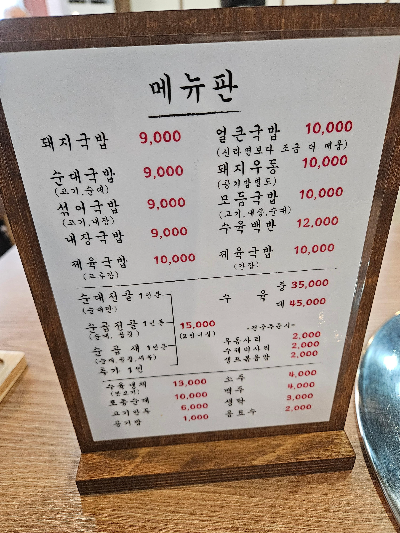 메뉴판
돼지국밥 9,000
순대국밥 9,000
(고기,순대)
섞어국밥 9,000
(고기,내장)
내장국밥 9,000
제육국밥 10,000
얼큰국밥 10,000
(신라면보다 조금 더 매움)
돼지우동 10,000
(공기밥별도)
모듬국밥 10,000
(고기,내장,순대)
수육백반 12,000
제육국밥 10,000
(간장)
순대전골 1인분
순곱전골 1인분
순곱새 1인분
추가 1인
15,000
수육 중 35,000
대 45,000
우동사리 2,000
수제비사리 2,000
생모볶음밥 2,000
수육냉채 13,000
모듬순대 10,000
고기만두 6,000
공기밥 1,000
소주 4,000
맥주 4,000
생탁 3,000
음료수 2,000